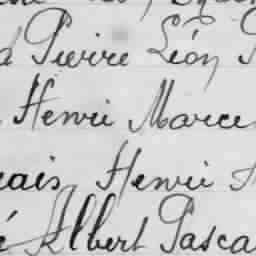 Pierre Léon
Henri Marce
eais Henri
é Albert Pasca